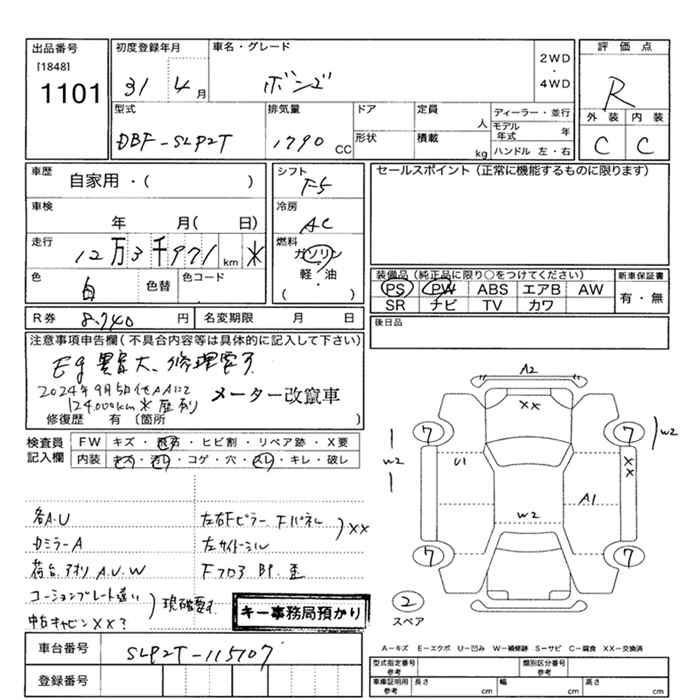 出品番号
[1848]
1101
初度登録年月
31 4 月
車名・グレード
ボンゴ
2WD
・
4WD
評価点
R
外装 内装
C C
型式
DBF-SLP2T
排気量
1790 CC
ドア
形状
定員
人
積載
kg
ディーラー・並行
モデル年式 年
ハンドル 左・右
車歴
自家用・( )
車検
年 月( 日)
走行
12万3千971 km ✳
色
白
色替
色コード
シフト
F5
冷房
AC
燃料
ガソリン
・
軽・油
( )
セールスポイント(正常に機能するものに限ります)
装備品(純正品に限り○をつけてください)
PS PW ABS エアB AW
SR ナビ TV カワ
新車保証書
有・無
後日品
R券 8,740 円
名変期限 月 日
注意事項申告欄(不具合内容等は具体的に記入して下さい)
Eg異音大、修理要す
2024年9月
124,000km✳歴有り
メーター改竄車
修復歴 有(箇所 )
検査員
記入欄
FW キズ・飛石・ヒビ割・リペア跡・X要
内装 キズ・汚レ・コゲ・穴・スレ・キレ・破レ
各A.U
Dミラー A
荷台.アオリ A.U.W
コーションプレート違い
中古キャビンXX?
現確要す
左右Fピラー Fパネル XX
左サイドシル
キー事務局預かり
A2
XX
7
7
W2
W2
U1
XX
A1
W2
7
7
2
スペア
A-キズ E-エクボ U-凹み W-補修跡 S-サビ C-腐食 XX-交換済
車台番号
SLP2T-115707
登録番号
型式指定番号
参考
類別区分番号
参考
車庫証明用
参考
長さ cm
幅 cm
高さ cm